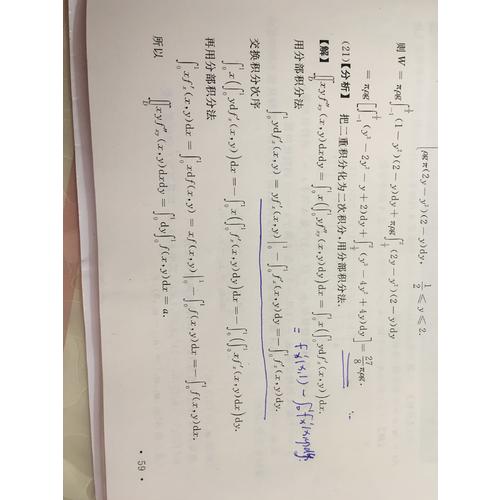 ρgπ(2y − y²)(2 − y)dy, 1/2 ≤ y ≤ 2.
则 W = πρg∫_{-1}^{1/2}(1 − y²)(2 − y)dy + πρg∫_{1/2}^{2}(2y − y²)(2 − y)dy
= πρg[∫_{-1}^{1/2}(y³ − 2y² − y + 2)dy + ∫_{1/2}^{2}(y³ − 4y² + 4y)dy] = 27/8 πρg.
(21)【分析】 把二重积分化为二次积分,用分部积分法.
【解】 ∬_D xyf″_{xy}(x,y)dxdy = ∫_0^1 x(∫_0^1 yf″_{xy}(x,y)dy)dx = ∫_0^1 x(∫_0^1 ydf′_x(x,y))dx.
用分部积分法
= f′x(x,1) − ∫_0^1 f′x(x,y)dy.
∫_0^1 ydf′_x(x,y) = yf′_x(x,y)|_0^1 − ∫_0^1 f′_x(x,y)dy = −∫_0^1 f′_x(x,y)dy.
交换积分次序
∫_0^1 x(∫_0^1 ydf′_x(x,y))dx = −∫_0^1 x(∫_0^1 f′_x(x,y)dy)dx = −∫_0^1(∫_0^1 xf′_x(x,y)dx)dy.
再用分部积分法
∫_0^1 xf′_x(x,y)dx = ∫_0^1 xdf(x,y) = xf(x,y)|_0^1 − ∫_0^1 f(x,y)dx = −∫_0^1 f(x,y)dx.
所以 ∬_D xyf″_{xy}(x,y)dxdy = ∫_0^1 dy∫_0^1 f(x,y)dx = a.
· 59 ·